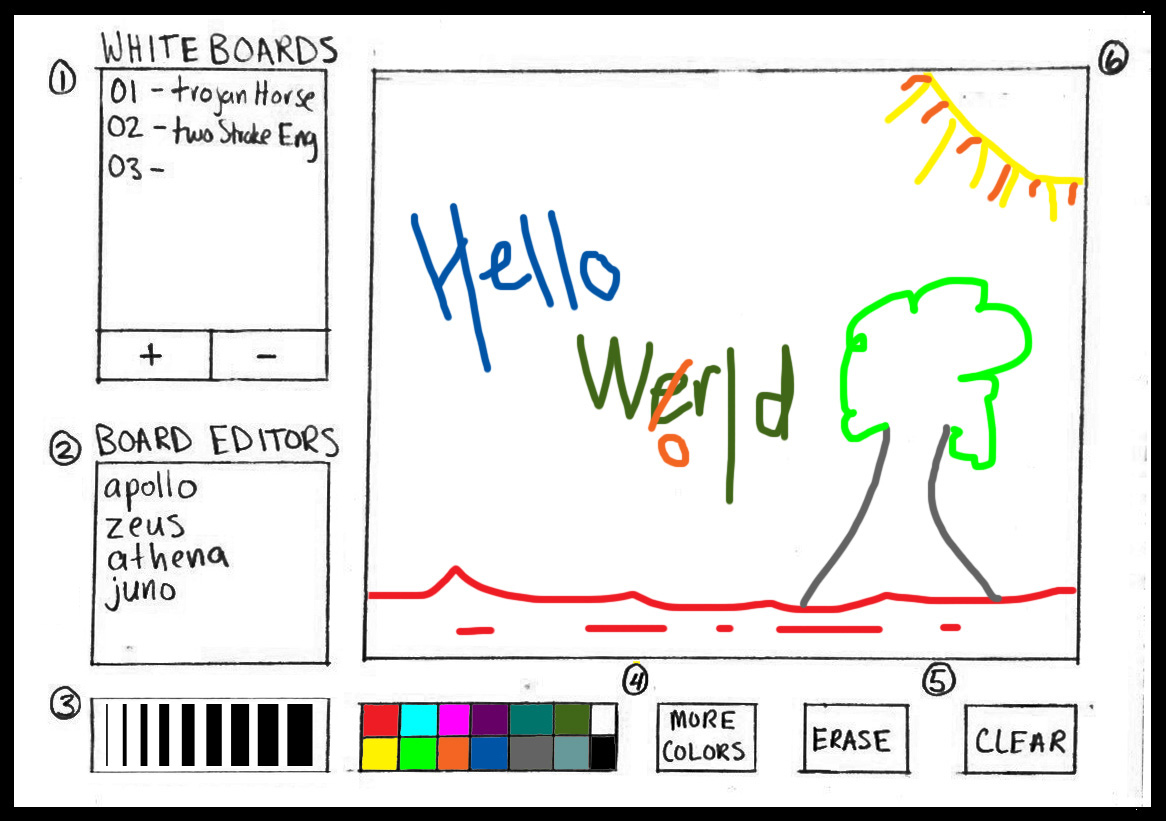 WHITE BOARDS
1
01 - trojan Horse
02 - two Stroke Eng
03 -
+ -
2 BOARD EDITORS
apollo
zeus
athena
juno
3
6
Hello
Werld
o
4
5
MORE
COLORS
ERASE
CLEAR